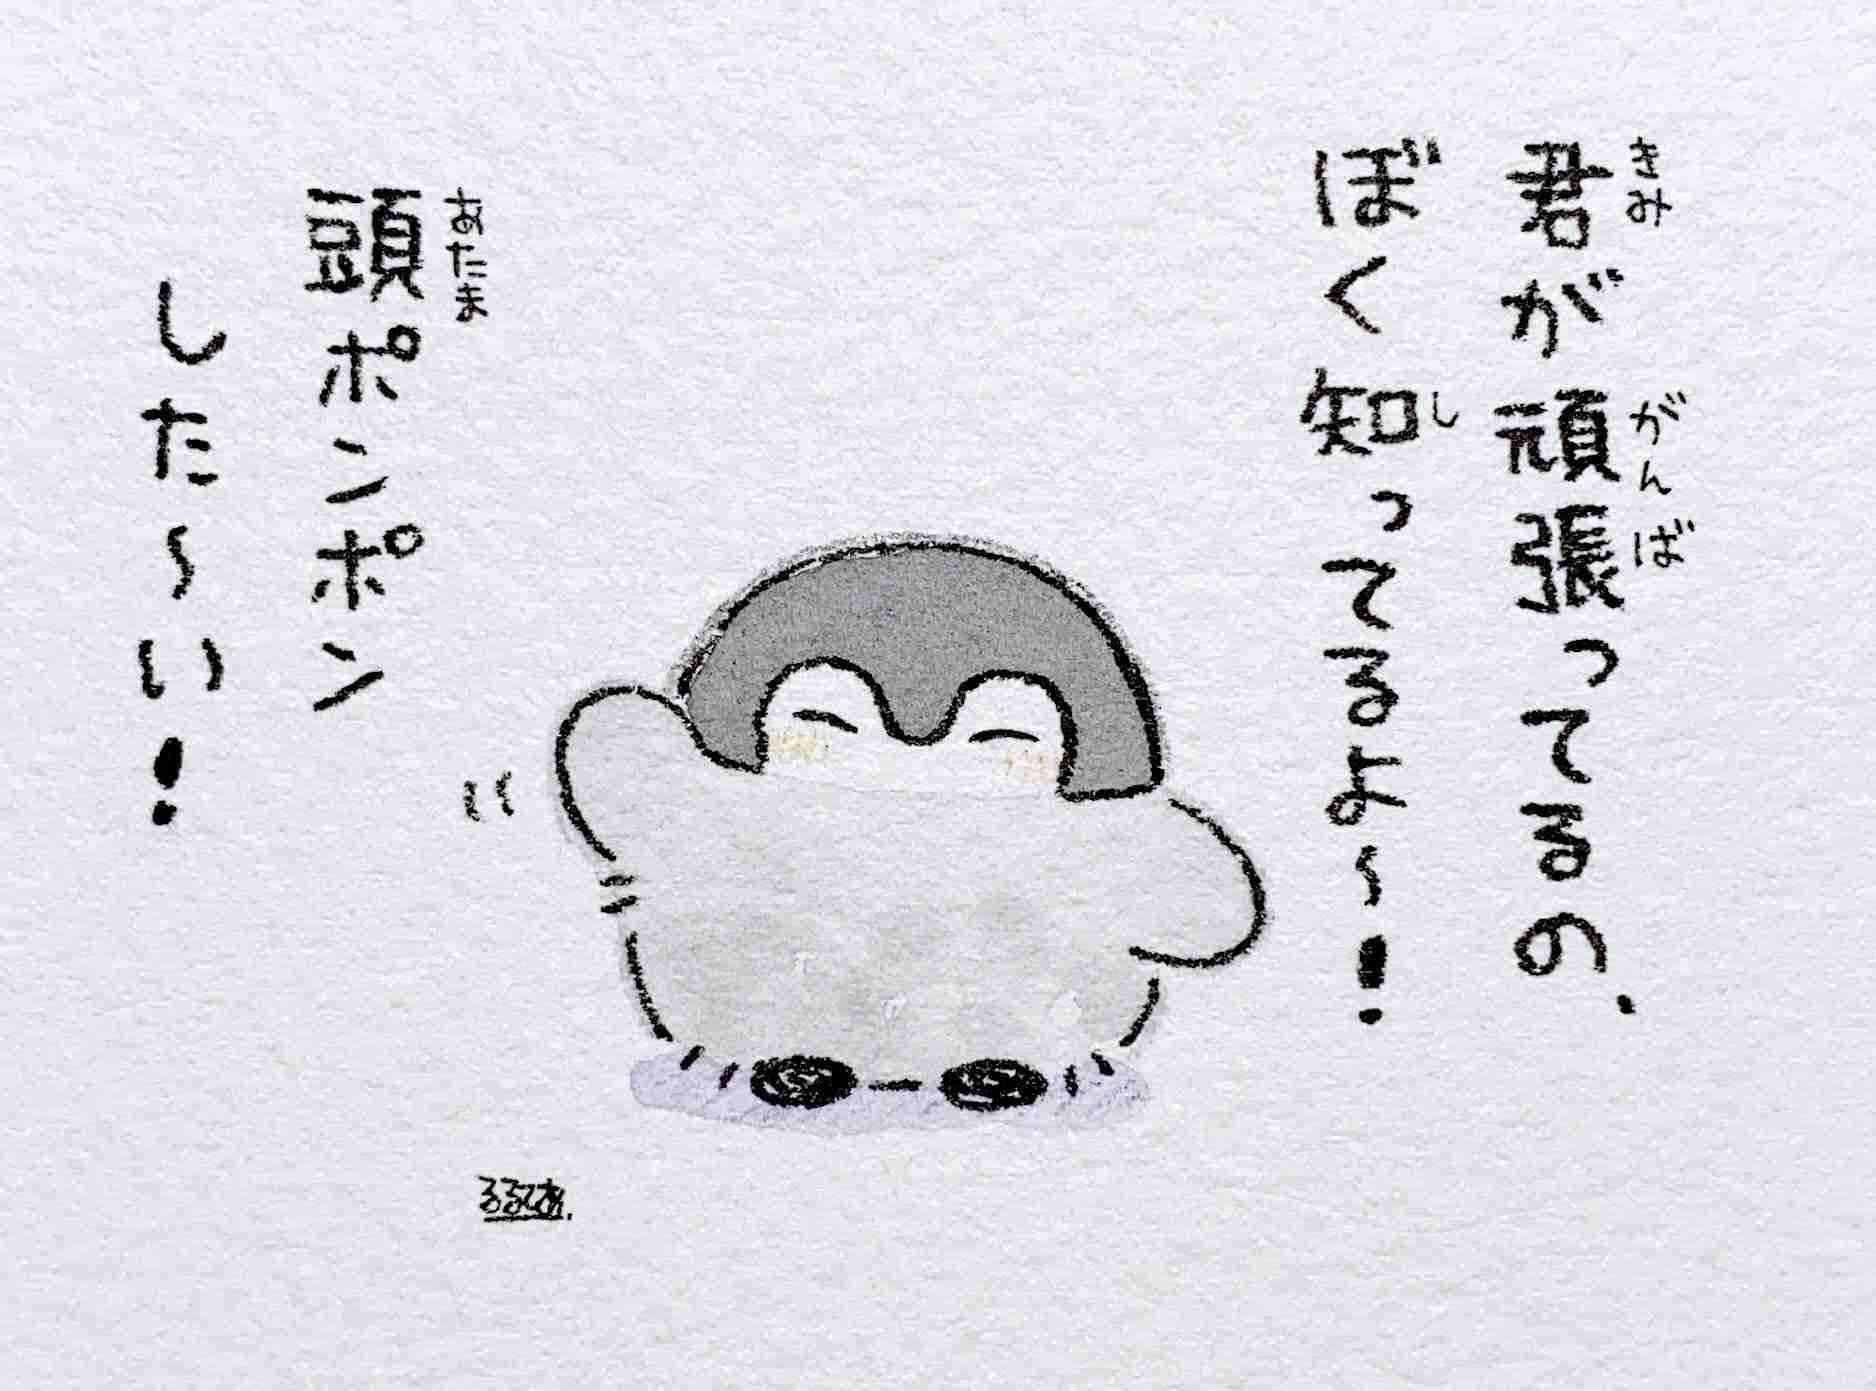 君が頑張ってるの、
きみ がんば
ぼく知ってるよ〜!
し
頭ポンポン
あたま
した〜い!
るるてあ